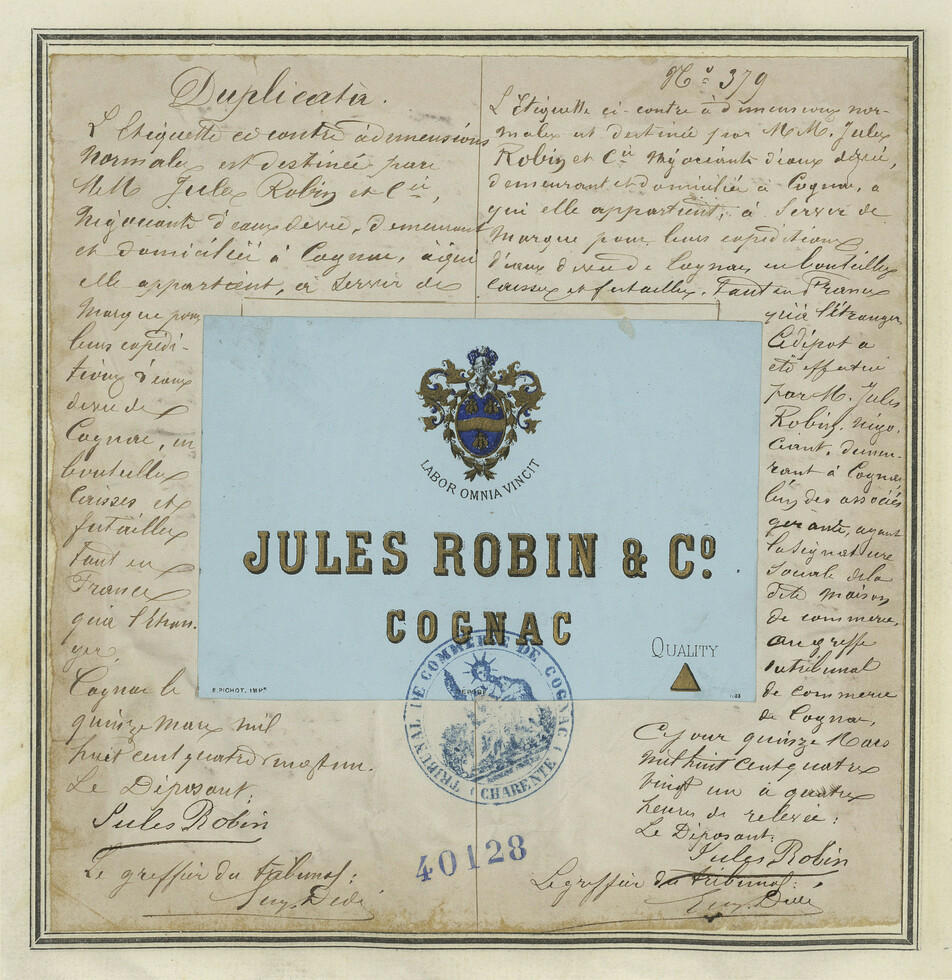 Duplicata.
L'Etiquette ci contre à dimensions
normales est destinée par
MM Jules Robin et Cie,
Négociants d'eaux devie, demeurant
et domiciliés à Cognac, à qui
elle appartient, à servir de
Marque pour
leurs expédi-
tions d'eaux
devie de
Cognac, en
bouteilles
Caisses et
futailles
tant en
France
qu'à l'étran-
ger.
Cognac le
quinze Mars mil
huit cent quatre vingt un.
Le Déposant:
Jules Robin
Le greffier du tribunal:
No 379
L'Etiquette ci-contre à dimensions nor-
males est destinée par MM. Jules
Robin et Cie Négociants d'eaux devie,
demeurant et domiciliés à Cognac, à
qui elle appartient, à servir de
Marque pour leurs expéditions
d'eaux devie de Cognac, en bouteilles
caisses et futailles, tant en France
qu'à l'étranger
Ce dépot a
été effectué
par M. Jules
Robin, négo-
ciant, demeu-
rant à Cognac
l'un des associés
gérants, ayant
la signature
sociale de la
dite maison
de commerce,
au greffe
du tribunal
de commerce
de Cognac,
Ce jour quinze Mars
mil huit cent quatre
vingt un à quatre
heures de relevée:
Le Déposant:
Jules Robin
Le greffier du tribunal:
LABOR OMNIA VINCIT
JULES ROBIN & Co.
COGNAC
QUALITY
E. PICHOT, IMPR
DÉPOSÉ
TRIBUNAL DE COMMERCE DE COGNAC
(CHARENTE)
40128